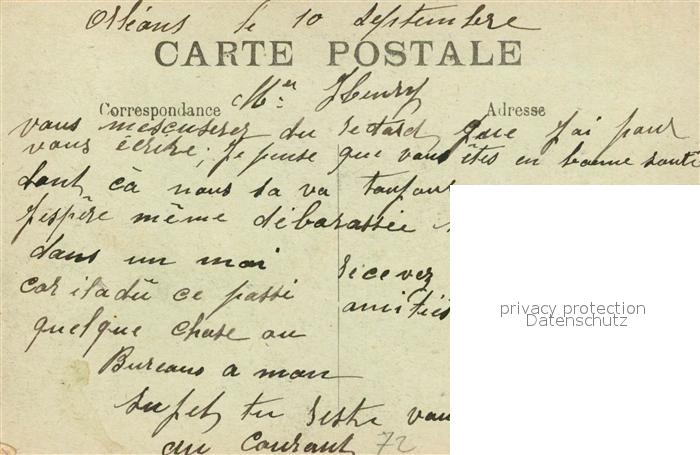 Orléans le 10 Septembre
CARTE POSTALE
Mr Henry
Correspondance Adresse
vous mescuserez du retard que j'ai pour
vous écrire; je pense que vous êtes en bonne santé
tant çà nous sa va toujours
j'espêre même débarassée
dans un moi
car il a dû ce passé
quelque chose au
Bureaus a mon
sujet tu reste vous
du courant 72
recevez
amitiés
privacy protection
Datenschutz